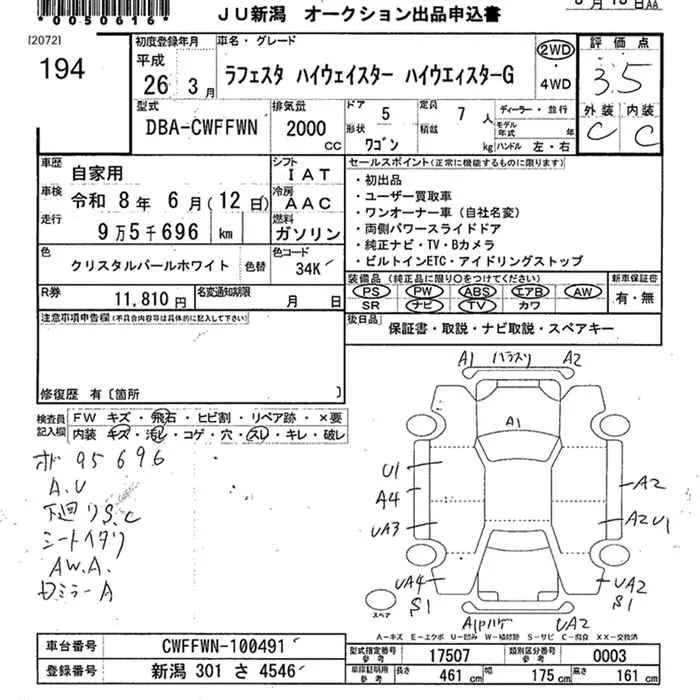 *0050616*
JU新潟 オークション出品申込書
[2072]
194
初度登録年月
平成
26年 3月
車名・グレード
ラフェスタ ハイウェイスター ハイウエィスターG
2WD
・
4WD
評価点
3.5
外装 内装
C C
型式
DBA-CWFFWN
排気量
2000
CC
ドア 5
形状 ワゴン
定員 7 人
積載 kg
ディーラー・並行
モデル年式 年
ハンドル 左・右
車歴 自家用
車検 令和 8年 6月(12日)
走行 9万5千696 km
シフト IAT
冷房 AAC
燃料 ガソリン
色 クリスタルパールホワイト 色替
色コード 34K
R券 11,810円
名変通知期限 月 日
セールスポイント(正常に機能するものに限ります)
・初出品
・ユーザー買取車
・ワンオーナー車(自社名変)
・両側パワースライドドア
・純正ナビ・TV・Bカメラ
・ビルトインETC・アイドリングストップ
装備品(純正品に限り○をつけてください)
PS PW ABS エアB AW
SR ナビ TV カワ
新車保証書
有・無
後日品
保証書・取説・ナビ取説・スペアキー
注意事項申告欄(不具合内容等は具体的に記入して下さい)
修復歴 有〔箇所 〕
検査員記入欄
FW キズ・飛石・ヒビ割・リペア跡・×要
内装 キズ・汚レ・コゲ・穴・スレ・キレ・破レ
オド 95696
A.U
下廻りS.C
シートイタリ
AW.A.
ロミラーA
A1 ハラスリ A2
A1
U1
A4
UA3
UA4
S1
A2
A2U1
UA2
S1
UA2
スペア
A-キズ E-エクボ U-凹み W-補修跡 S-サビ C-腐食 XX-交換済
車台番号 CWFFWN-100491
登録番号 新潟 301 さ 4546
型式指定番号 参考 17507
類別区分番号 参考 0003
車庫証明用 参考 長さ 461 cm 幅 175 cm 高さ 161 cm